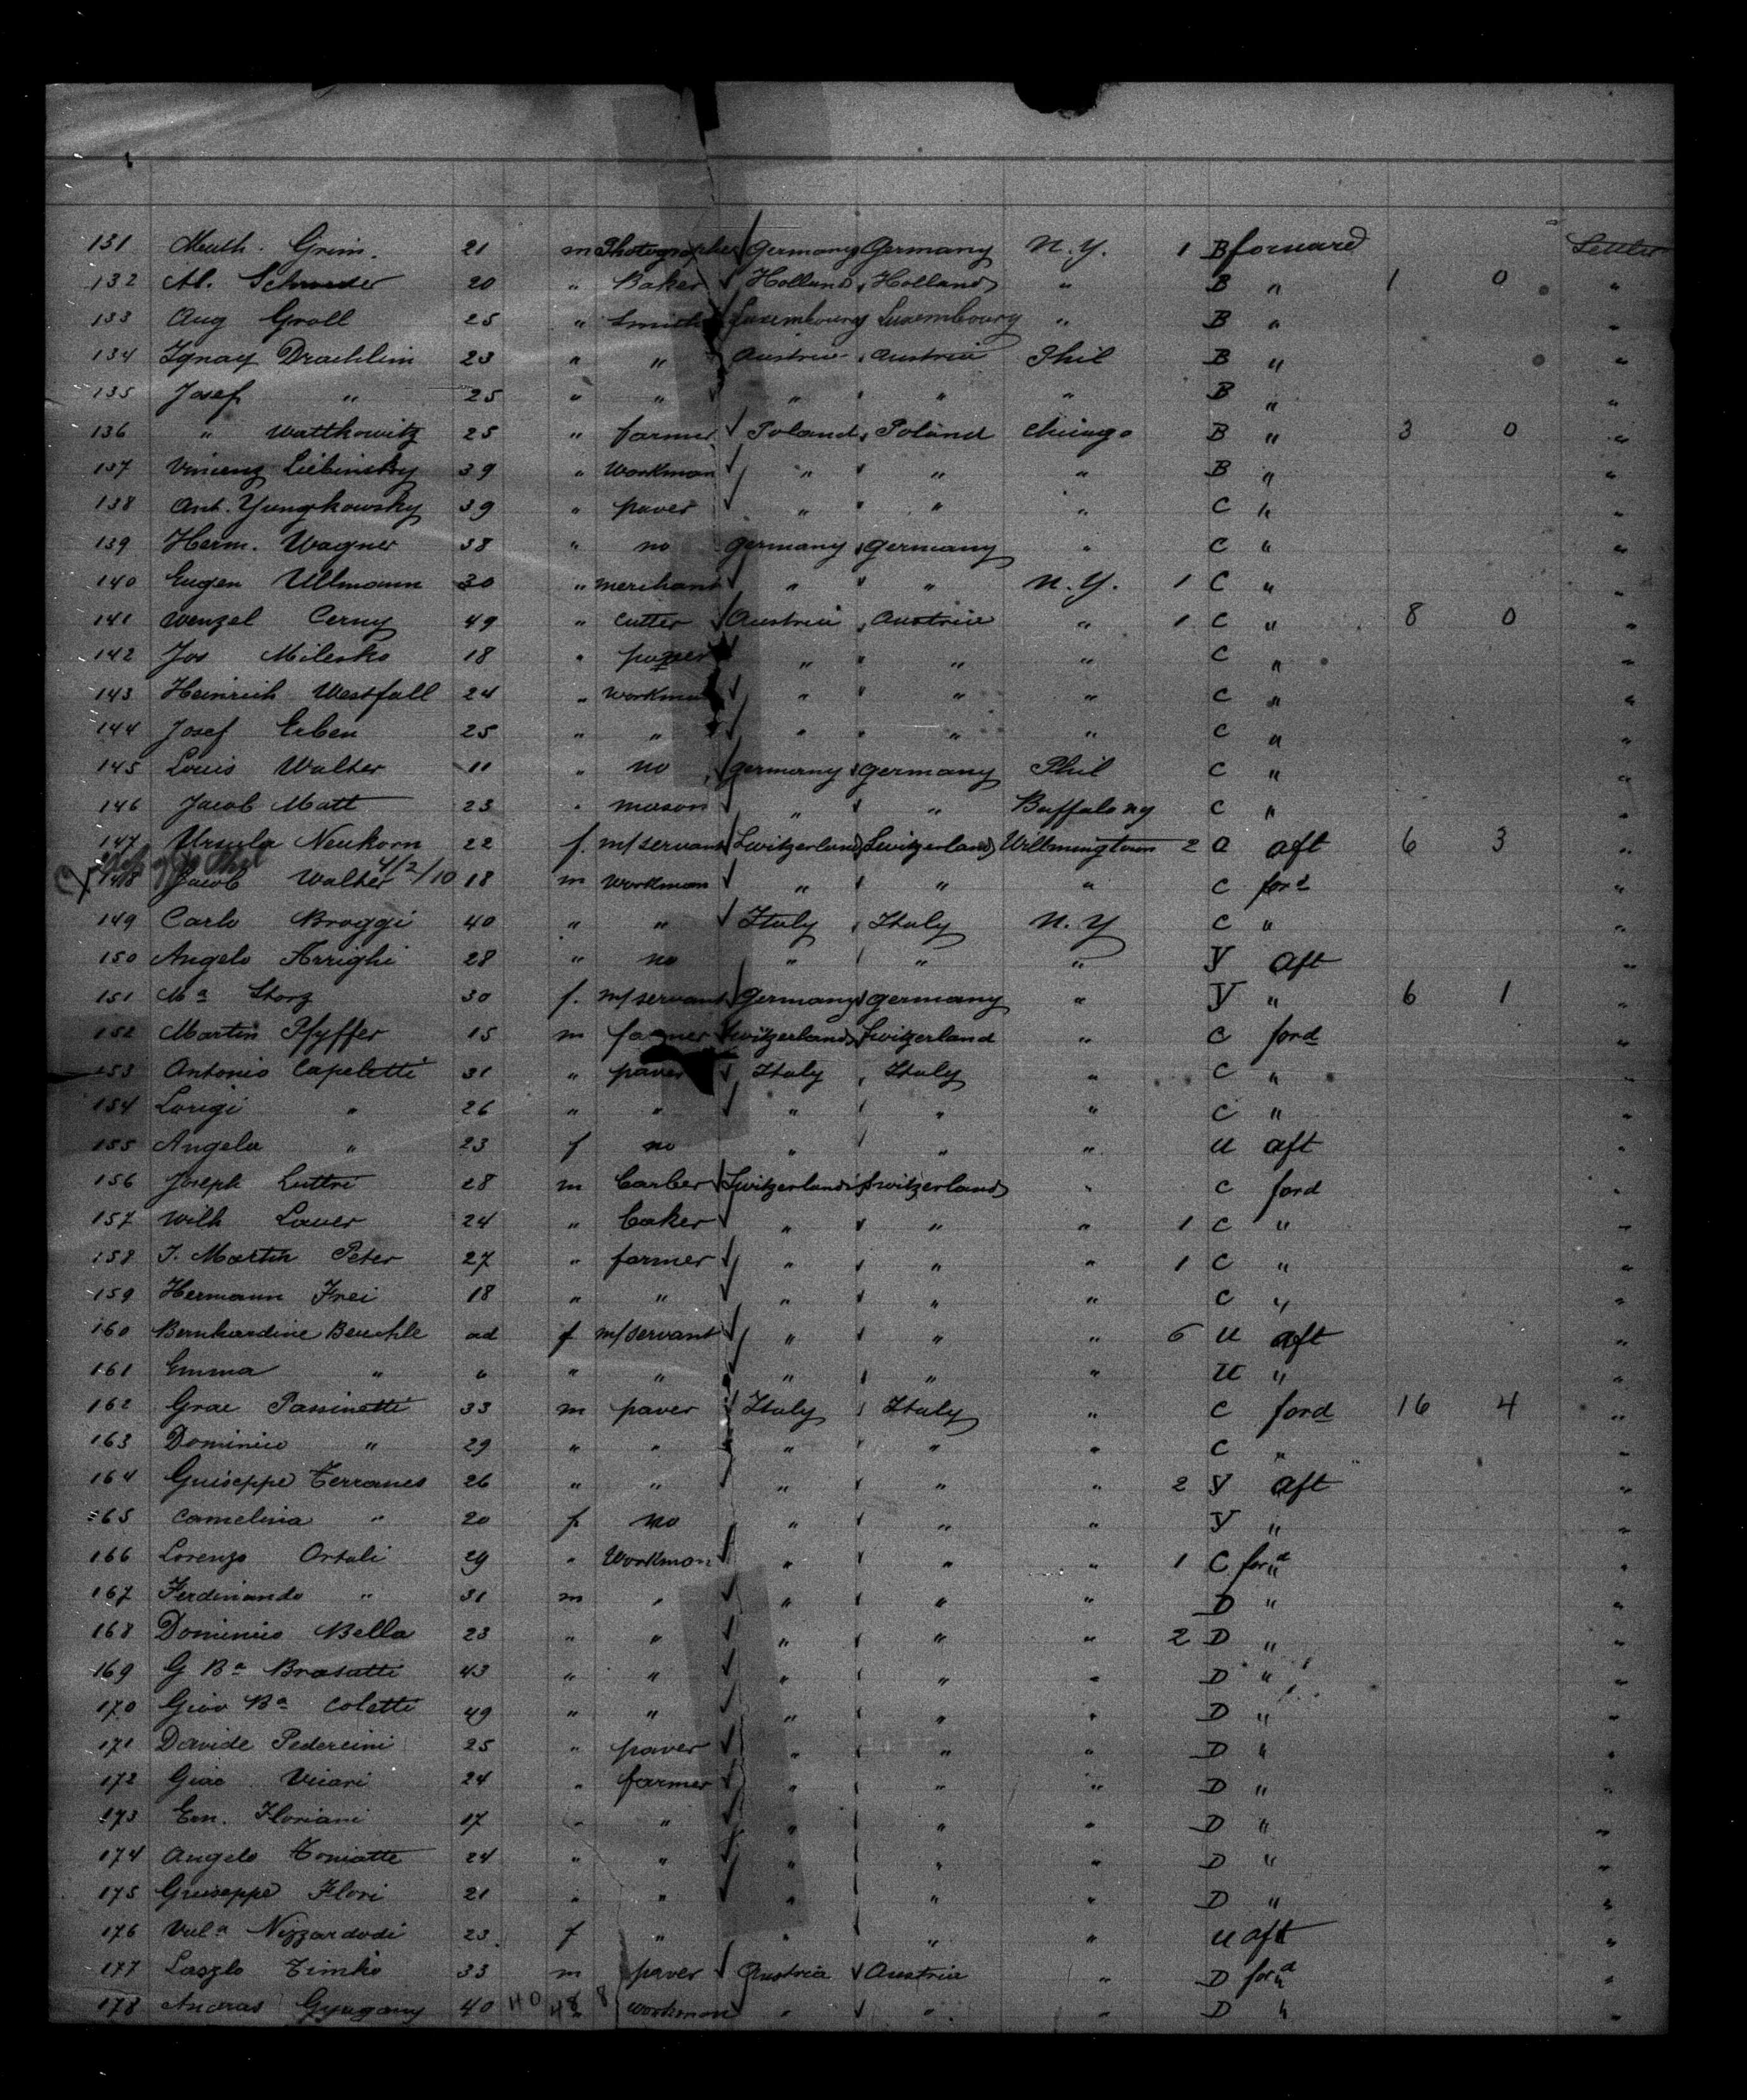 131 Math. Grim. 21 m Photographer Germany Germany N.Y. 1 B forward Settler
132 Al. Schroeder 20 " Baker Holland Holland " B " 1 0 "
133 Aug Groll 25 " Smith Luxembourg Luxembourg " B " "
134 Ignay Drachlim 23 " " Austria Austria Phil B " "
135 Josef " 25 " " " " " B " "
136 " Wattkowitz 25 " farmer Poland Poland Chicago B " 3 0 "
137 Vincenz Liebinsky 39 " Workman " " " B " "
138 Ant. Yungkowsky 39 " paver " " " C " "
139 Herm. Wagner 38 " no Germany Germany " C " "
140 Eugen Ullmann 30 " merchant " " N.Y. 1 C " "
141 Wenzel Cerny 49 " Cutter Austria Austria " 1 C " 8 0 "
142 Jos Milesko 18 " paver " " " C " "
143 Heinrich Westfall 24 " workman " " " C " "
144 Josef Erben 25 " " " " " C " "
145 Louis Walter 11 " no Germany Germany Phil C " "
146 Jacob Matt 23 " mason " " Buffalo ny C " "
147 Ursula Neukorn 22 f. m/servant Switzerland Switzerland Willmingtown 2 a aft 6 3 "
148 Jacob Walter 4/2/10 18 m Workman " " " C ford "
149 Carlo Broggi 40 " " Italy Italy N.Y C " "
150 Angelo Arrighi 28 " no " " " Y aft "
151 Ma Storz 30 f. m/servant Germany Germany " Y " 6 1 "
152 Martin Pfyffer 15 m farmer Switzerland Switzerland " C ford "
153 Antonio Capeletti 31 " paver Italy Italy " C " "
154 Luigi " 26 " " " " " C " "
155 Angela " 23 f no " " " U aft "
156 Joseph Luttri 28 m barber Switzerland Switzerland " C ford "
157 Wilh Lauer 24 " baker " " " 1 C " "
158 J. Martin Peter 27 " farmer " " " 1 C " "
159 Hermann Frei 18 " " " " " C " "
160 Bernhardine Beuchle ad f m/servant " " " 6 U aft "
161 Emma " " " " " " " U " "
162 Grae Passinetti 33 m paver Italy Italy " C ford 16 4 "
163 Dominico " 29 " " " " " C " "
164 Guiseppe Terranes 26 " " " " " 2 Y aft "
165 Camelinia " 20 f no " " " Y " "
166 Lorenzo Ortali 29 " Workman " " " 1 C ford "
167 Ferdinando " 31 m " " " " D " "
168 Dominico Bella 23 " " " " " 2 D " "
169 G Ba Brasatti 43 " " " " " D " "
170 Giov Ba Coletti 49 " " " " " D " "
171 Davide Pedercini 25 " paver " " " D " "
172 Giac Vicari 24 " farmer " " " D " "
173 Ern. Floriani 17 " " " " " D " "
174 Angelo Toniatte 24 " " " " " D " "
175 Guiseppe Flori 21 " " " " " D " "
176 Nizzardodi 23 f " " " " U aft "
177 Laszlo Timko 33 m paver Austria Austria " D ford "
178 Andras Gyugany 40 workman " " " D " "